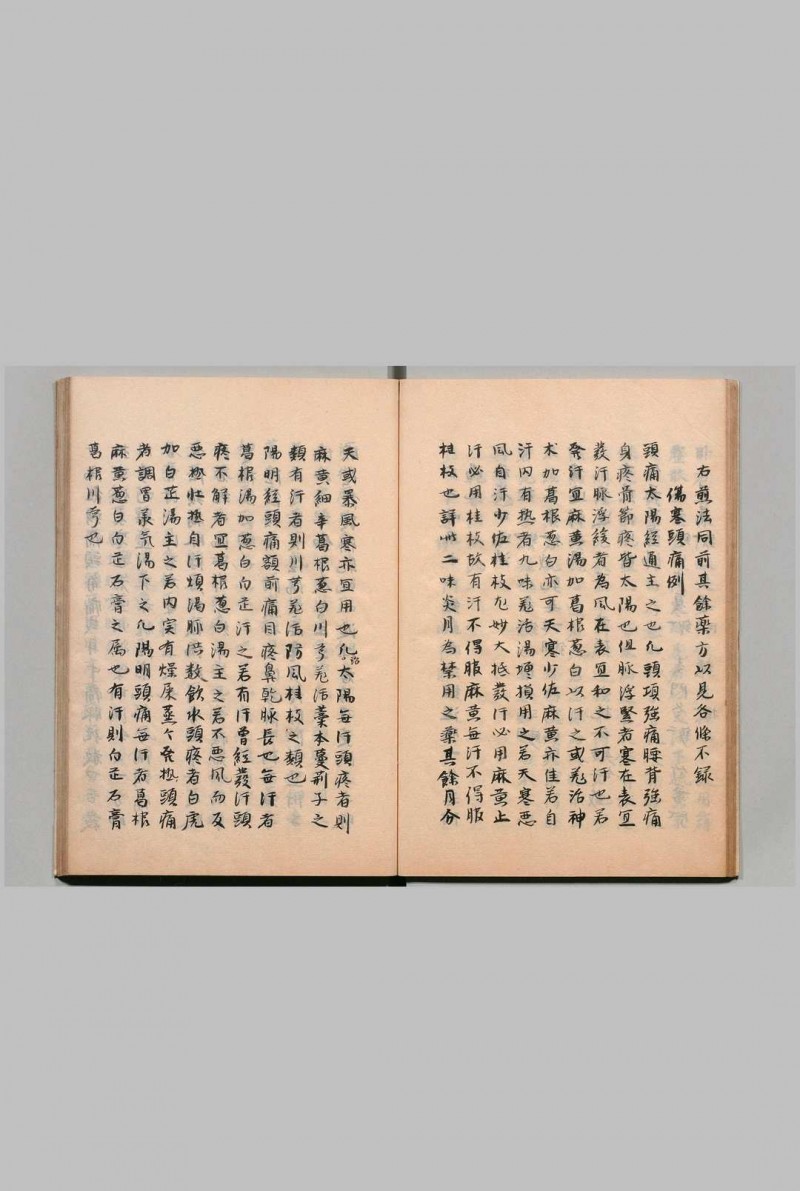 右煎法同前其餘藥方以見各條不録
傷寒頭痛例
頭痛太陽經通主之也凡頭項強痛腰背強痛
身疼骨節疼皆太陽也但脉浮緊者寒在表宜
發汗脉浮緩者為風在表宜和之不可汗也若
發汗宜麻黄湯加葛根葱白以汗之或羗活神
术加葛根葱白亦可天寒少佐麻黄亦佳若自
汗内有热者九味羗活湯㨿用之若天寒悪
風自汗少佐桂枝尤妙大抵發汗必用麻黄止
汗必用桂枝故有汗不得服麻黄每汗不得服
桂枝也詳此二味炎月為禁用之藥其餘月分
天或暴風寒亦宜用也凡治太陽每汗頭疼者則
麻黄細辛葛根葱白川芎羗活藁本蔓荊子之
類有汗者則川芎羗活防風桂枝之類也
陽明經頭痛額前痛目疼鼻乾脉長也每汗者
葛根湯加葱白白芷汗之若有汗曾經發汗頭
疼不解者宜葛根葱白湯主之若不悪風而反
悪热壮热自汗煩渴脉洪数飲水頭疼者白虎
加白芷湯主之若内実有燥屎蒸々發热頭痛
者調胃承气湯下之凡陽明頭痛每汗者葛根
麻黄葱白白芷石膏之属也有汗則白芷石膏
葛根川芎也